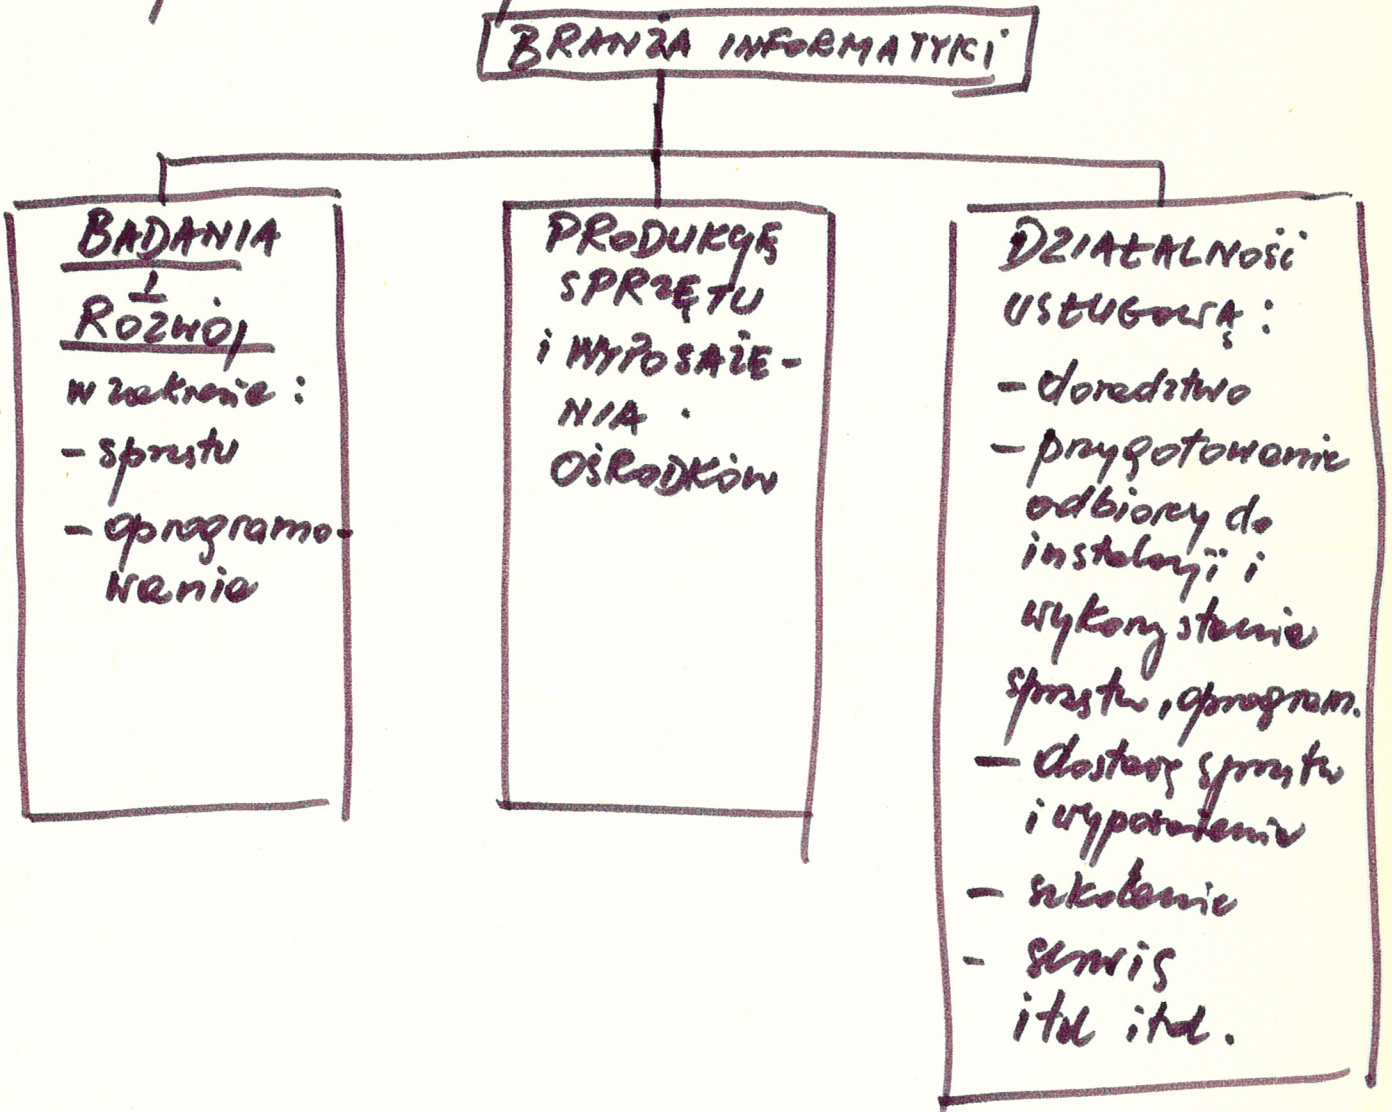 BRANŻA INFORMATYKI
BADANIA
I
ROZWÓJ
w zakresie:
- sprzętu
- oprogramo-
wania
PRODUKCJĘ
SPRZĘTU
i WYPOSAŻE-
NIA
OŚRODKÓW
DZIAŁALNOŚĆ
USŁUGOWĄ:
- doradztwo
- przygotowanie
odbiorcy do
instalacji i
wykorzystania
sprzętu, oprogram.
- dostawę sprzętu
i wyposażenia
- szkolenie
- serwis
itd itd.